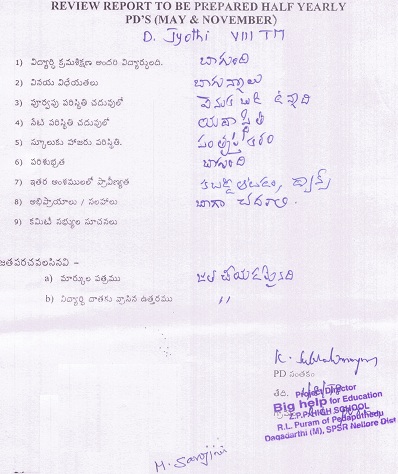 REVIEW REPORT TO BE PREPARED HALF YEARLY
PD'S (MAY & NOVEMBER)
D. Jyothi VIII TM
1) విద్యార్థి క్రమశిక్షణ అందరి విద్యార్థులది. బాగుంది
2) వినయ విధేయతలు బాగున్నాయి
3) పూర్వపు పరిస్థితి చదువులో
4) నేటి పరిస్థితి చదువులో
5) స్కూలుకు హాజరు పరిస్థితి.
6) పరిశుభ్రత బాగుంది
7) ఇతర అంశములలో ప్రావీణ్యత కబడ్డీ ఆటడం, డ్యాన్స్
8) అభిప్రాయాలు / సలహాలు బాగా చదవాలి.
9) కమిటీ సభ్యుల సూచనలు
జతపరచవలసినవి –
a) మార్కుల పత్రము జత చేయడమైనది
b) విద్యార్థి దాతకు వ్రాసిన ఉత్తరము "
PD సంతకం
తేది.
Project Director
Big help for Education
Z.P.P.HIGH SCHOOL
R.L. Puram of Pedaputhedu
Dagadarthi (M), SPSR Nellore Dist
M. Sarojini